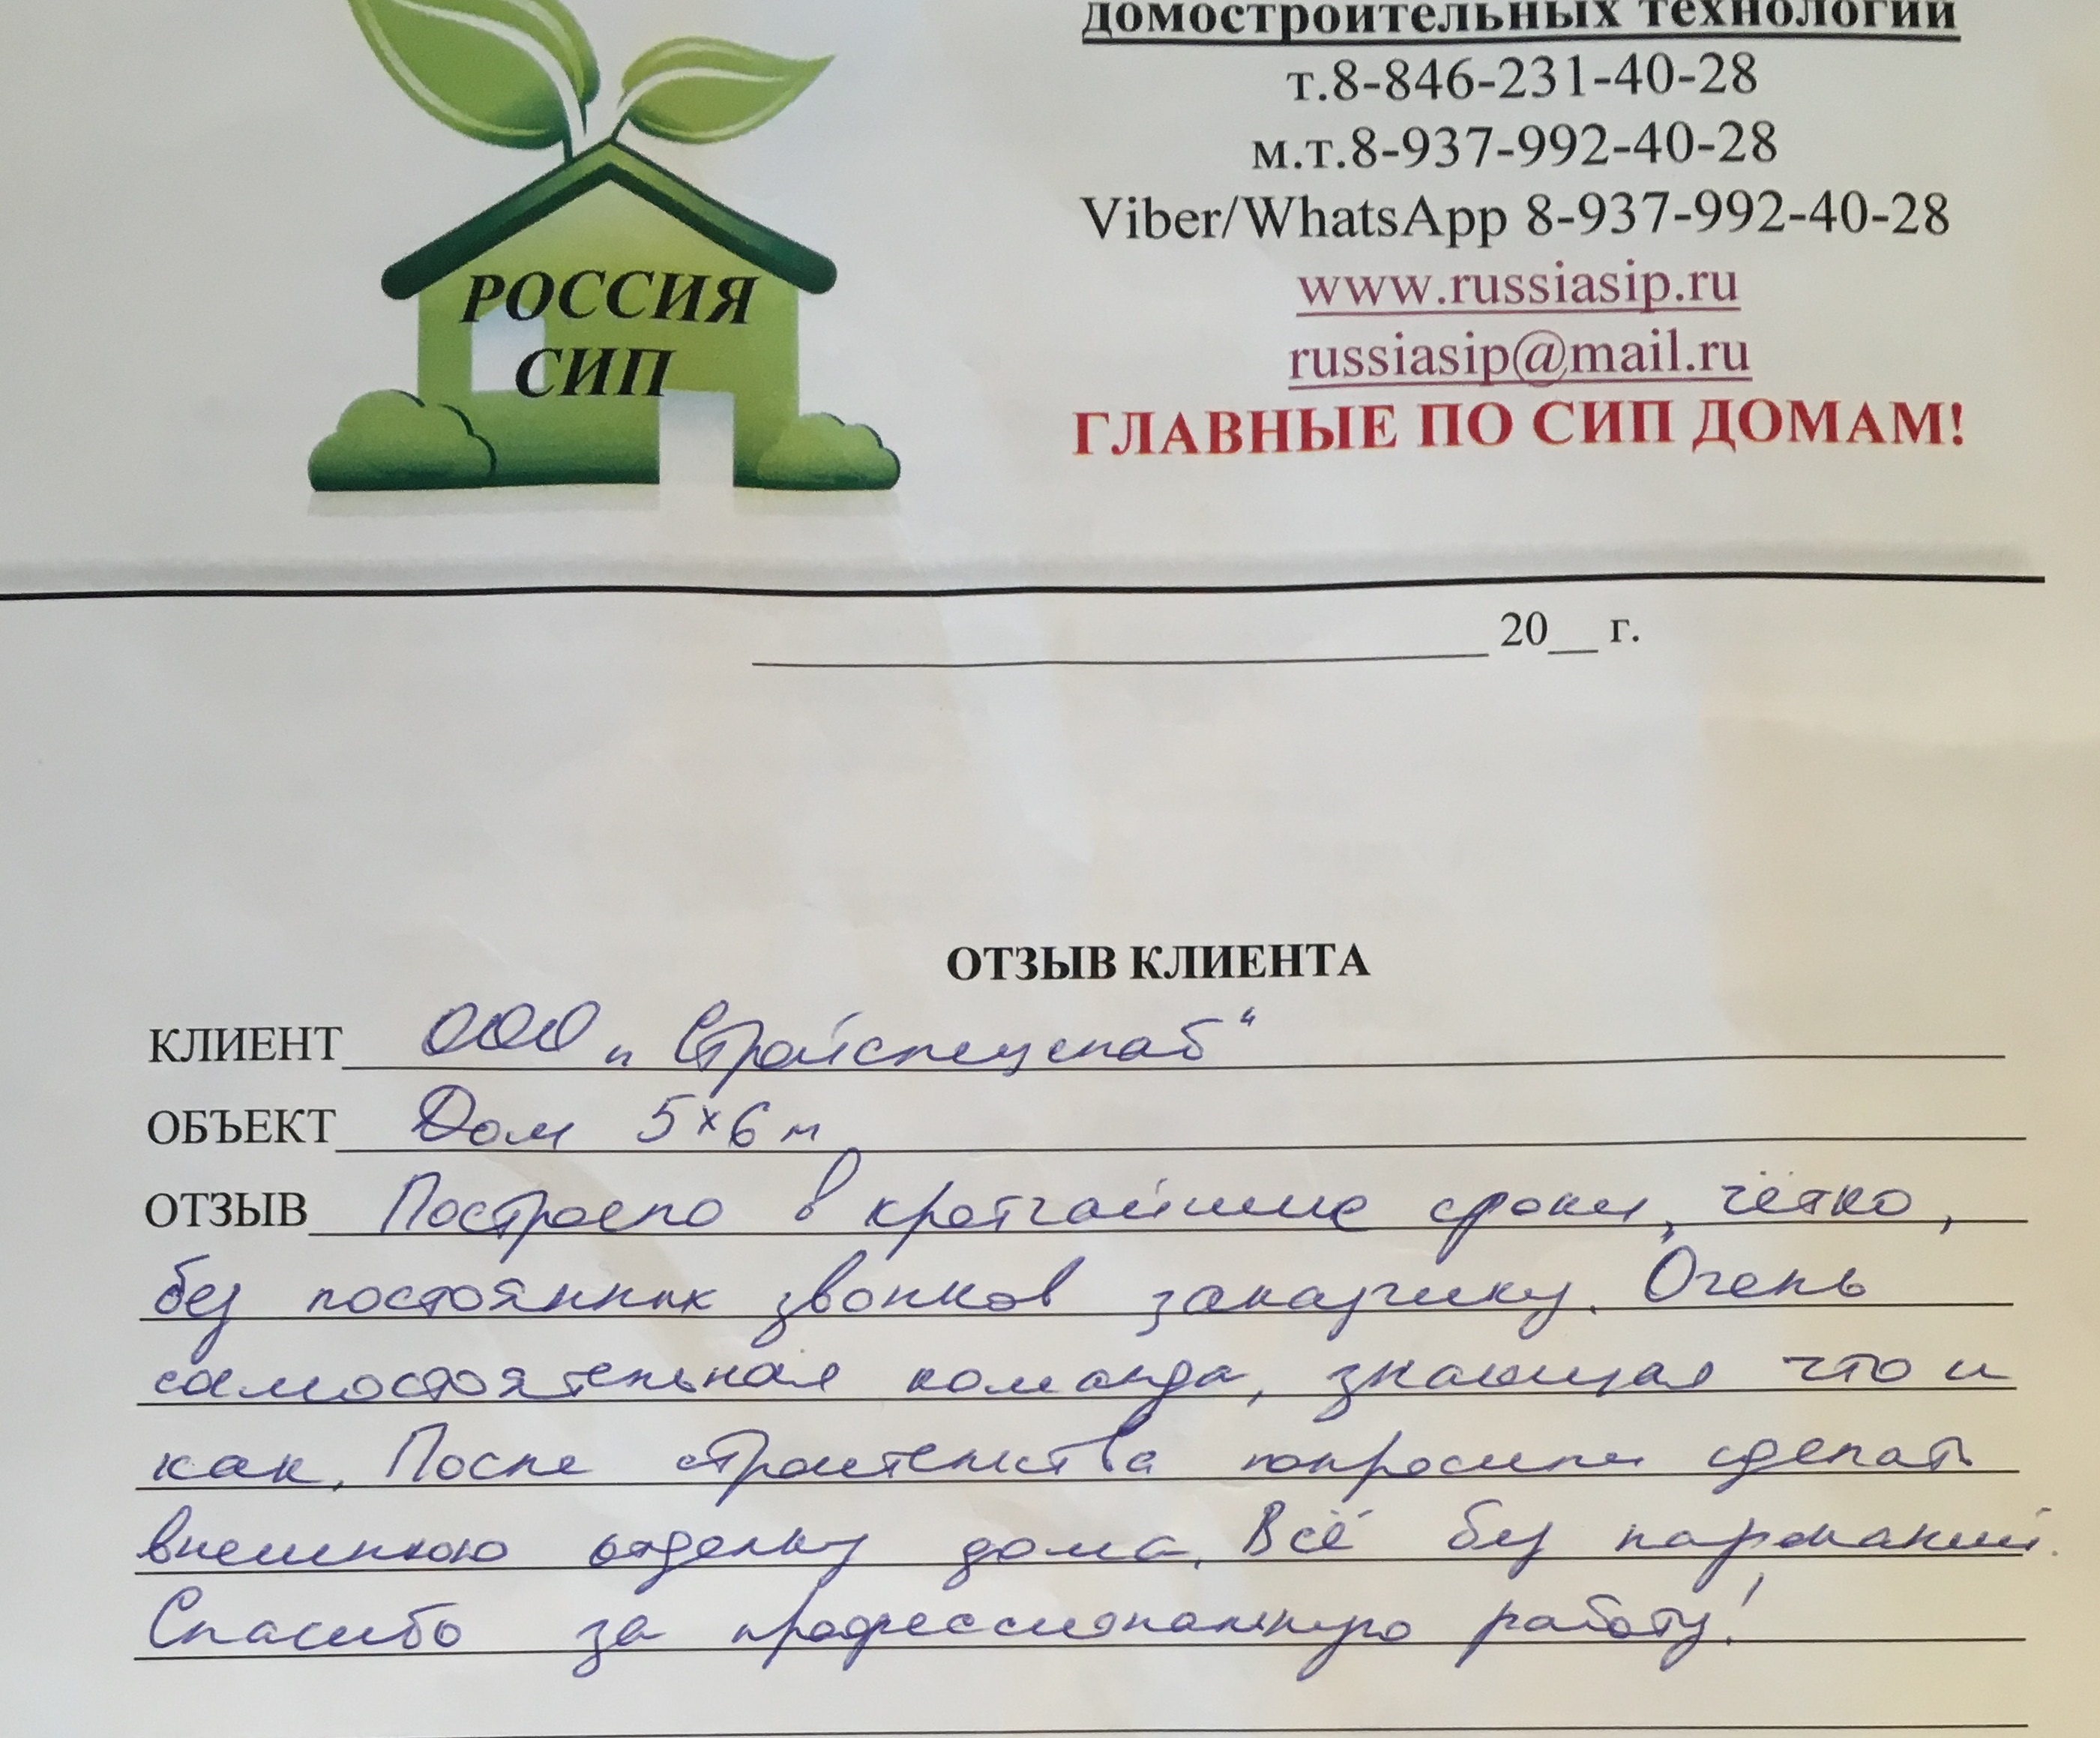 домостроительных технологий
т.8-846-231-40-28
м.т.8-937-992-40-28
Viber/WhatsApp 8-937-992-40-28
www.russiasip.ru
russiasip@mail.ru
ГЛАВНЫЕ ПО СИП ДОМАМ!
РОССИЯ
СИП
20__ г.
ОТЗЫВ КЛИЕНТА
КЛИЕНТ ООО „Стройспецснаб“
ОБЪЕКТ Дом 5×6 м
ОТЗЫВ Построено в кротчайшие сроки, чётко,
без постоянных звонков заказчику. Очень
самостоятельная команда, знающая что и
как. После строительства попросили сделать
внешнюю отделку дома. Всё без нареканий.
Спасибо за профессиональную работу!